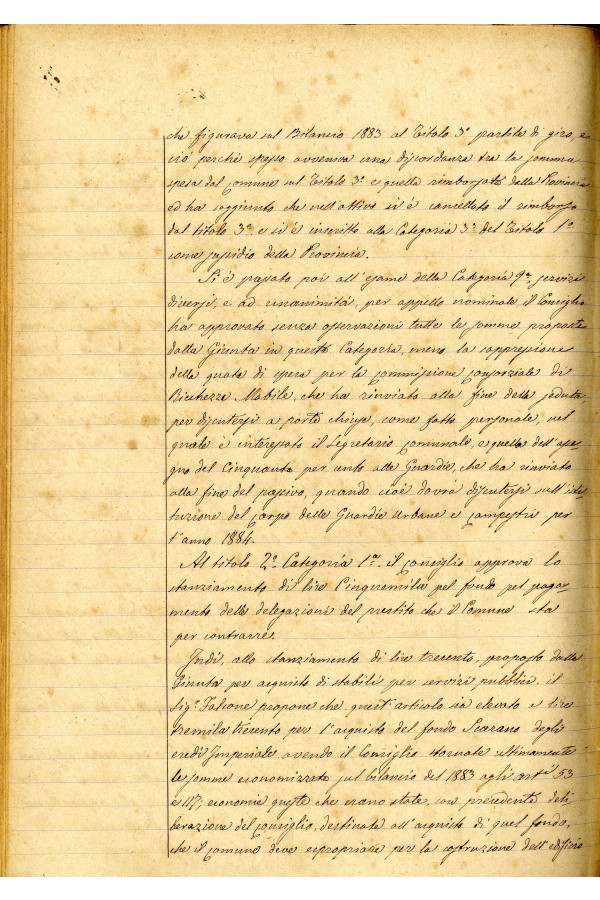 che figurava sul Bilancio 1883 al Titolo 3º partite di giro, e
ciò perchè spesso avveniva una discordanza tra la somma
spesa dal Comune sul Titolo 3º e quella rimborsata dalla Provincia
ed ha soggiunto che nell'attivo si è cancellato il rimborso
dal titolo 3º e si è inscritto alla Categoria 3ª del Titolo 1º
come sussidio della Provincia.
Si è passato poi all'esame della Categoria 9ª servizi
diversi, e ad unanimità, per appello nominale, il Consiglio
ha approvato senza osservazioni tutte le somme proposte
dalla Giunta in questa Categoria, meno la soppressione
della quota di spesa per la Commissione Consorziale di
Ricchezza Mobile, che ha rinviato alla fine della seduta,
per discutersi a porte chiuse, come fatto personale, nel
quale è interessato il Segretario Comunale, e quella dell'asse-
gno del Cinquanta per cento alle Guardie, che ha rinviato
alla fine del passivo, quando cioè dovrà discutersi sull'isti-
tuzione del Corpo delle Guardie Urbane e Campestri per
l'anno 1884.
Al titolo 2º Categoria 1ª il Consiglio approva lo
stanziamento di lire Cinquemila pel fondo pel paga-
mento delle delegazioni del prestito che il Comune sta
per contrarre.
Indi, allo stanziamento di lire trecento, proposto dalla
Giunta per acquisto di stabili per servizi pubblici, il
Sigr Falcone propone che quest'articolo sia elevato a lire
tremila trecento per l'acquisto del fondo Scarano degli
eredi Imperiale, avendo il Consiglio stornate ultimamente
le somme economizzate sul bilancio del 1883 agli arti 53
e 117, economie queste che erano state, con precedente deli
berazione del Consiglio, destinate all'acquisto di quel fondo,
che il Comune deve espropriare per la costruzione dell'edificio